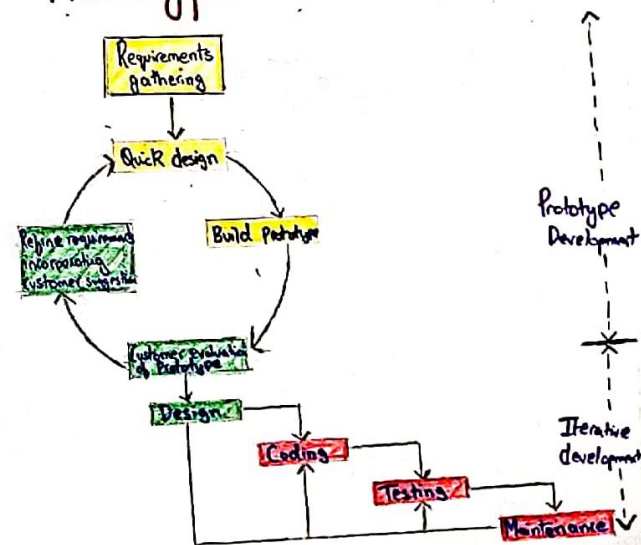 Requirements
gathering
Quick design
Build Prototype
Refine requirements
incorporating
customer suggestion
Customer evaluation
of Prototype
Design
Coding
Testing
Maintenance
Prototype
Development
Iterative
development